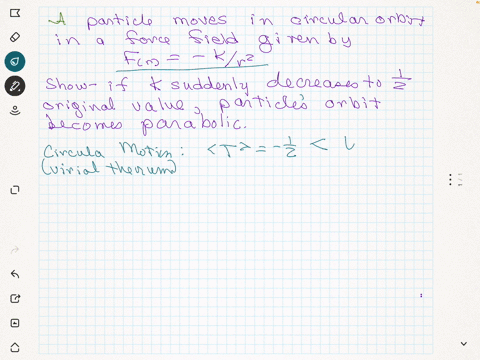 A particle moves in circular orbit
in a force field given by
F(r) = - K/r²
Show if K suddenly decreases to 1/2
original value, particle's orbit
becomes parabolic.
Circula Motion: <T> = -1/2 <
(virial theorum)